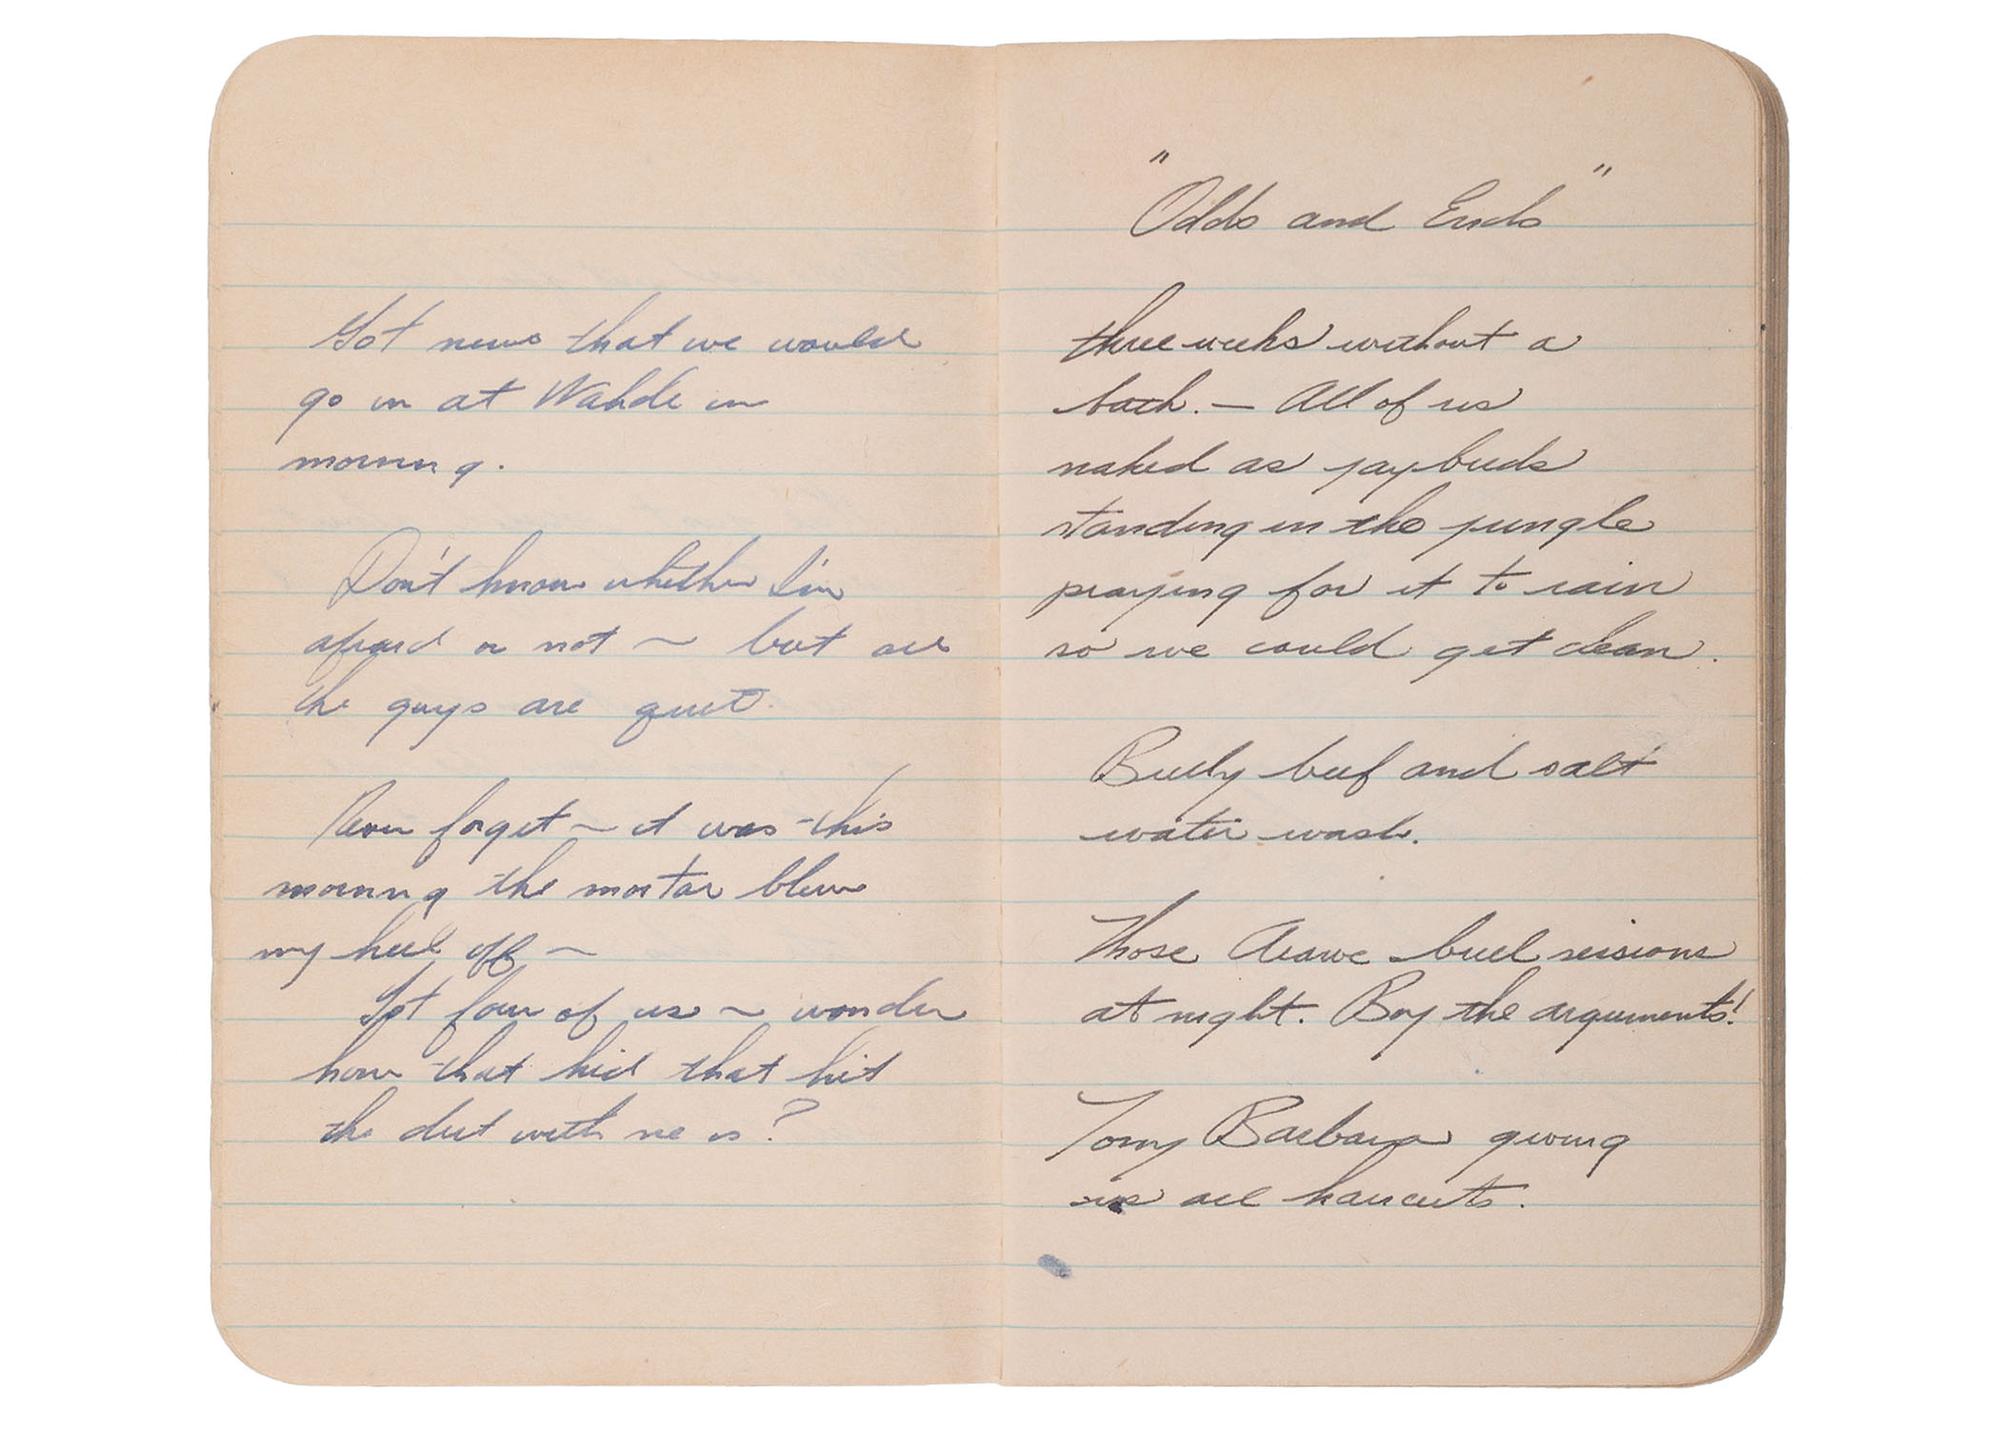 Got news that we would
go in at Wakde in
morning.
Don't know whether I'm
afraid or not ~ but all
the guys are quiet.
Never forget ~ it was this
morning the mortar blew
my heel off ~
Got four of us ~ wonder
how that kid that hit
the dirt with me is?
"Odds and Ends"
three weeks without a
bath. — All of us
naked as jaybirds
standing in the jungle
praying for it to rain
so we could get clean.
Bully beef and salt
water wash.
Those Arawe bull sessions
at night. Boy the arguments!
Tony Barbara giving
us all haircuts.